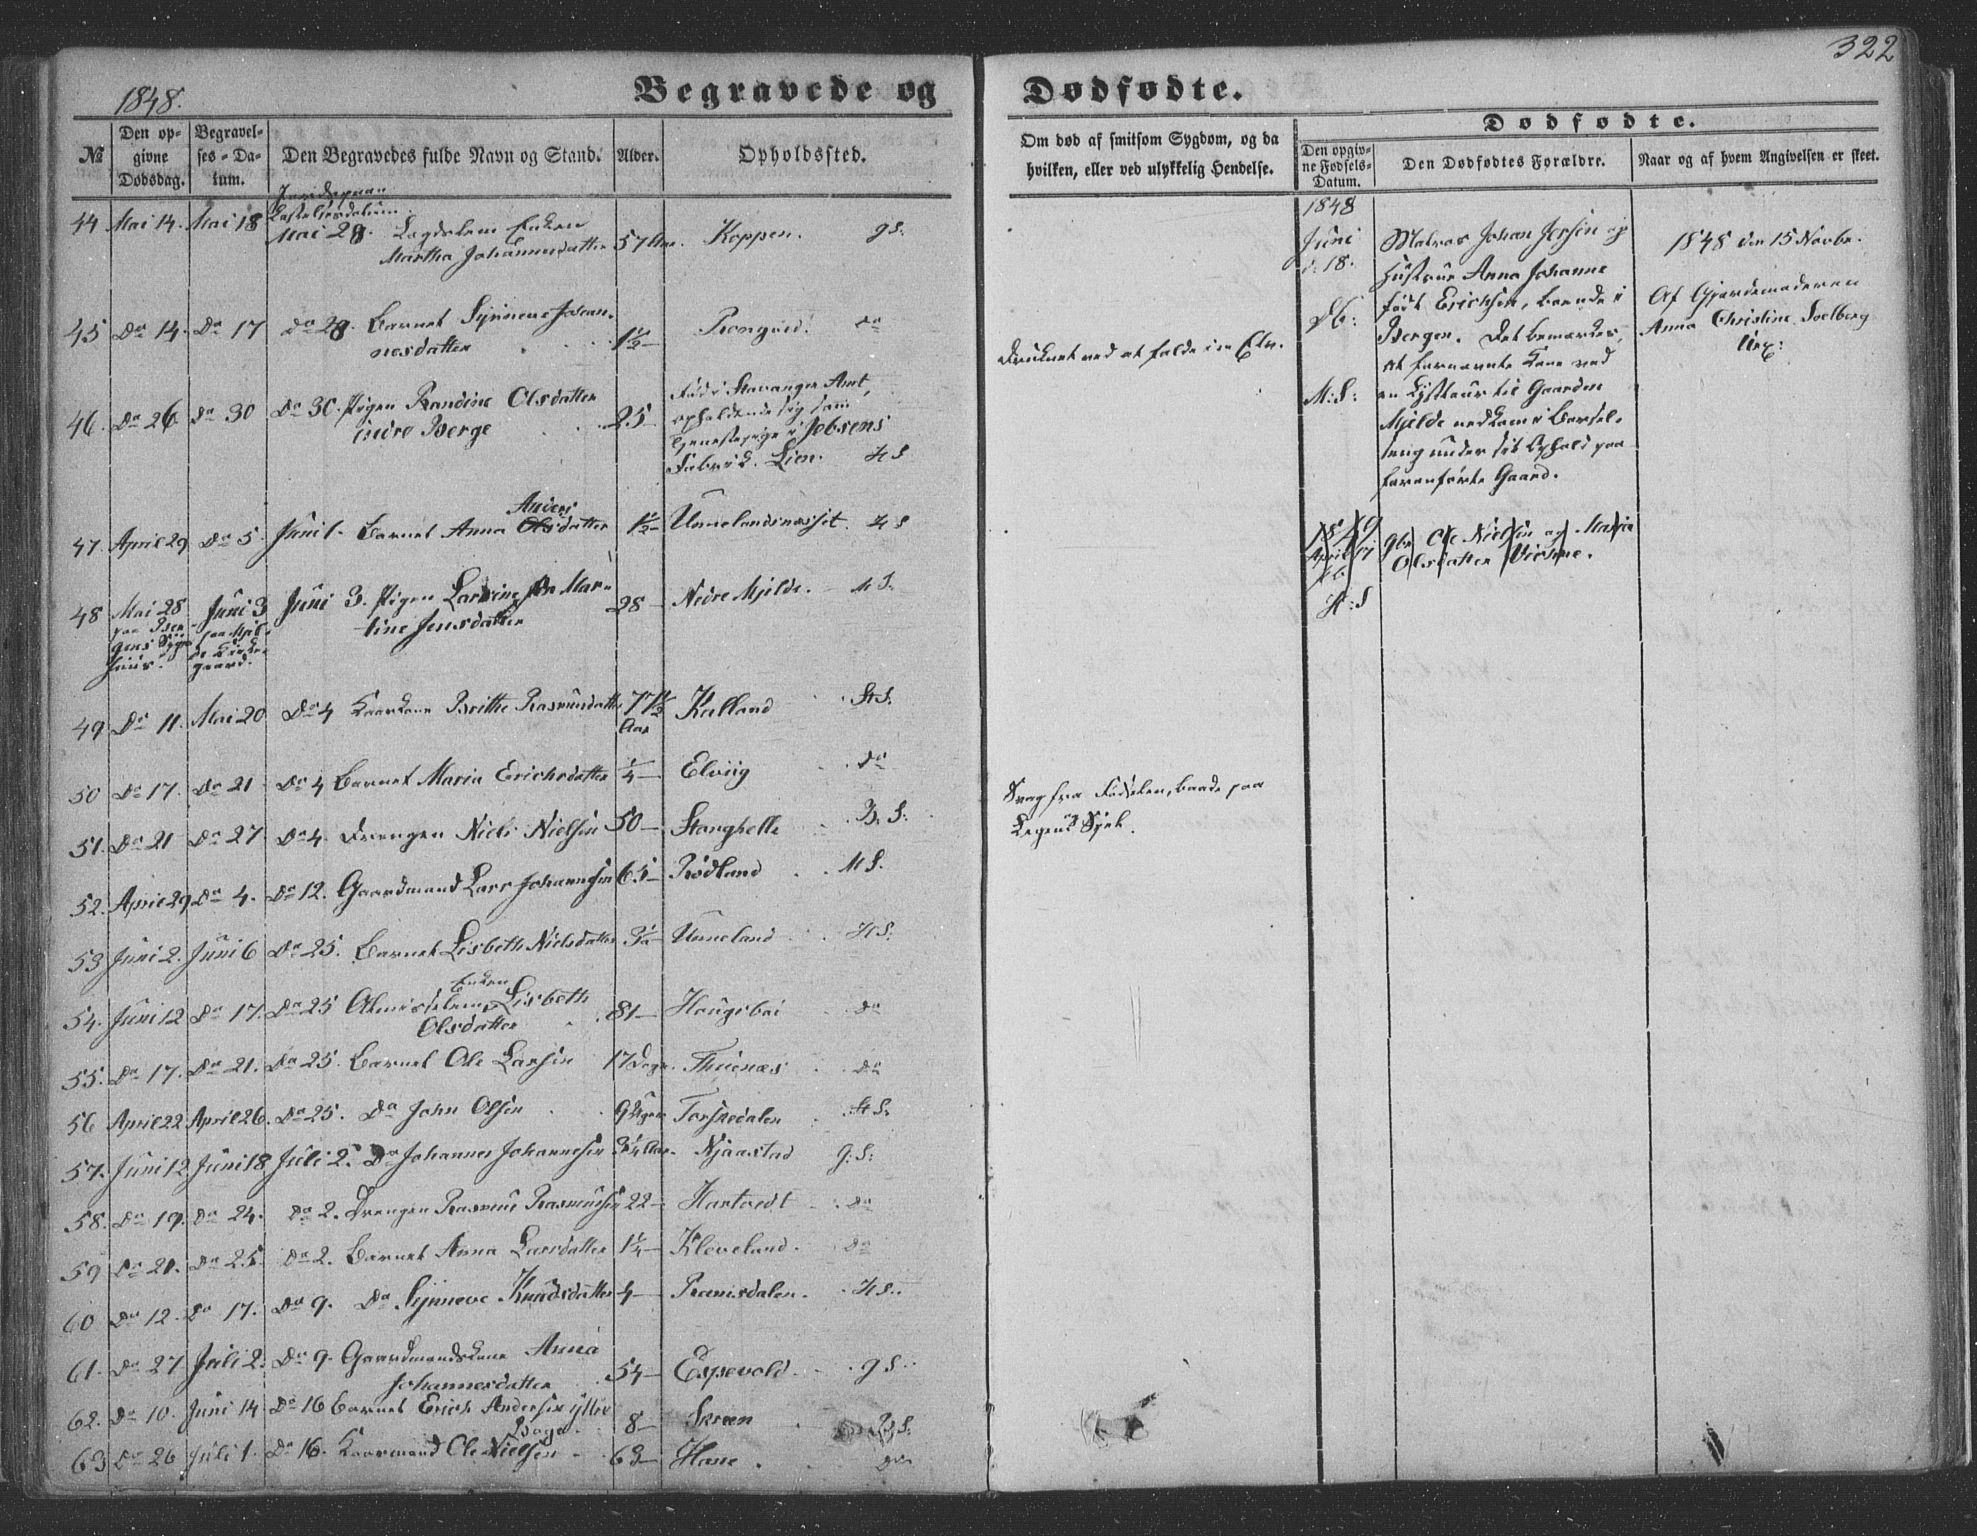 322
1848.
Begravede og Dødfødte.
№
Den opgivne Dødsdag.
Begravelses-Datum.
Den Begravedes fulde Navn og Stand.
Alder.
Opholdssted.
Om død af smitsom Sygdom, og da hvilken, eller ved ulykkelig Hendelse.
Dødfødte.
Den opgivne Fødsels-Datum.
Den Dødfødtes Forældre.
Naar og af hvem Angivelsen er skeet.
44 Mai 14. Mai 18 Mai 28. Lægdslem Enken
Martha Johannesdatter 57 Aar. Koppen. g S:
45 Do 14. Do 17 Do 28. Barnet Synneve Johan-
nesdatter 1½ — Do
Druknet ved at falde i en Elv.
46. Do 26 Do 30 Do 30. Pigen Randine Olsdatter
indre Berge 25 — Født i Stavanger Amt,
opholdende sig som
Tjenestepige i Jebsens
Fabrik. Lien. H S
47. April 29 Do 5. Juni 1. Barnet Anna Olsdatter
Anders
1½ — Urnelandsnesset. H S
48 Mai 28 Juni 3 Juni 3. Pigen Mar-
tine Jensdatter 28 — Nedre Mjelde. M S.
paa Ber-
gens Syge-
huus.
paa Mjel-
de Kirke-
gaard.
49 Do 11. Mai 20 Do 4 Kaarkone Brithe Rasmusdatter 77½
Aar Kalland St S.
50 Do 17. Do 21 Do 4 Barnet Maria Erichsdatter ¼ — Elviig Do
51. Do 21 Do 27 Do 4. Drengen Niels Nielsen 50 — Stanghelle B. S.
Svag fra Fødselen, baade paa
Legem og Sjel.
52. April 29 Do 4. Do 12. Gaardmand Lars Johannesen 65 — Rødland M S.
53 Juni 2. Juni 6 Do 25. Barnet Lisbeth Nielsdatter Urneland H S.
54. Juni 12 Do 17. Do 25 Enken Lisbeth
Olsdatter 81 — Haugsbøi Do
55. Do 17. Do 21. Do 25. Barnet Ole Larsen 17 Dage. Thuenæs Do
56 April 22 April 26. Do 25. Do John Olsen 9 Uger Torskedalen St S.
57. Juni 12 Juni 18 Juli 2. Do Johannes Johannesen 3¼ Aar. Njaastad g: S:
58. Do 19. Do 24. Do 2. Drengen Rasmus Rasmussen 22 — Hartvedt Do
59 Do 21. Do 25. Do 2. Barnet Anna Larsdatter 1¼ — Kleveland. Do
60 Do 12. Do 17. Do 9. Do Synneve Knudsdatter 4 — Ramsdalen. H S.
61. Do 27 Juli 2. Do 9. Gaardmandskone Anna
Johannesdatter 54 — Espevold. g S.
62. Do 10. Juni 14 Do 16 Barnet Erich Andersen yttre
Boge. 8 — Skreen B. S.
63 Do 26 Juli 1. Do 16. Kaarmand Ole Nielsen 63 — Hane. Do
1848
Juni
d. 18.
M: S:
Matros Johan Jersin og
Hustrue Anna Johanne
født Erichsen, boende i
Bergen. Det bemærkes,
at fornævnte Kone ved
en Lysttour til Gaarden
Mjelde nedkom i Barsel-
seng under sit Ophold paa
foranførte Gaard.
1848 den 15 Novbr.
Af Gjordemoderen
Anna Christine Solberg
1849
April 17
H: S
Gbr. Ole Nielsen og Maria
Olsdatter